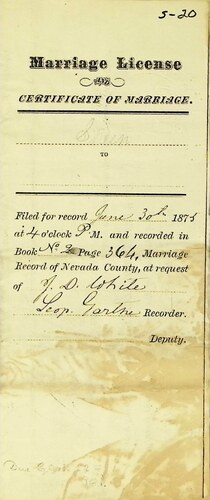 5-20
Marriage License
AND
CERTIFICATE OF MARRIAGE.
TO
Filed for record June 30th 1875
at 4 o'clock P M. and recorded in
Book No 2 Page 364, Marriage
Record of Nevada County, at request
of J. D. White
Recorder.
Deputy.